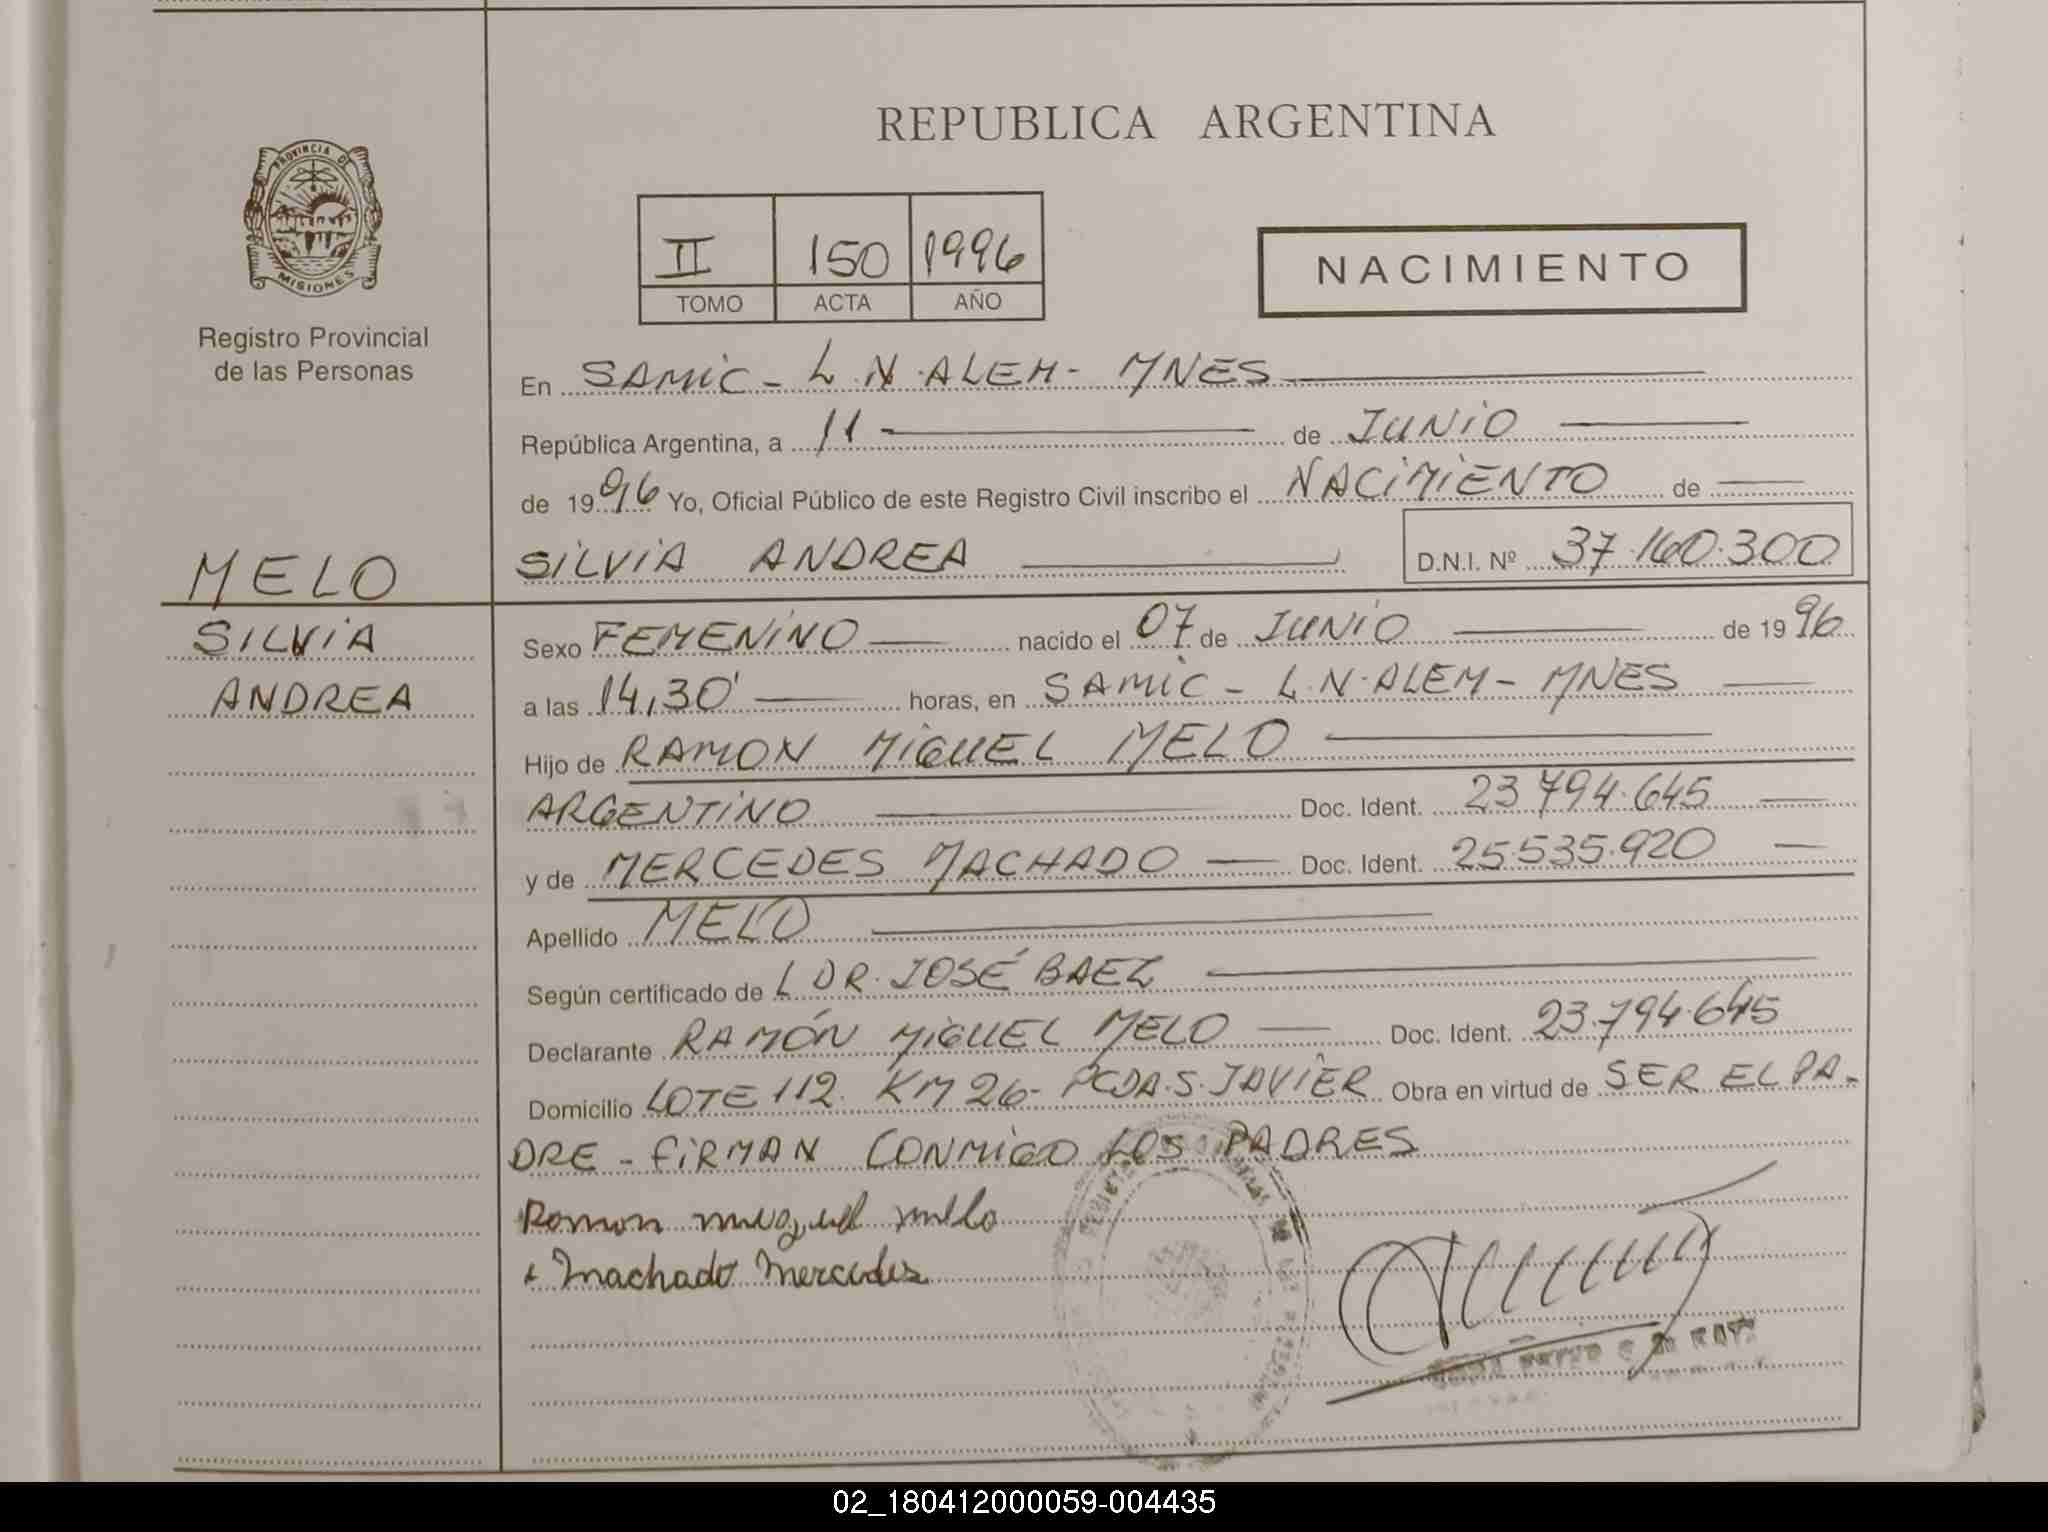 REPUBLICA ARGENTINA
PROVINCIA DE
MISIONES
Registro Provincial
de las Personas
II 150 1996
TOMO ACTA AÑO
NACIMIENTO
En SAMIC - L.N. ALEM - MNES
República Argentina, a 11 de JUNIO
de 1996 Yo, Oficial Público de este Registro Civil inscribo el NACIMIENTO de
SILVIA ANDREA D.N.I. Nº 37.160.300
MELO
SILVIA
ANDREA
Sexo FEMENINO nacido el 07 de JUNIO de 1996
a las 14,30' horas, en SAMIC - L.N. ALEM - MNES
Hijo de RAMON MIGUEL MELO
ARGENTINO Doc. Ident. 23.794.645
y de MERCEDES MACHADO Doc. Ident. 25.535.920
Apellido MELO
Según certificado de L DR. JOSÉ BAEZ
Declarante RAMÓN MIGUEL MELO Doc. Ident. 23.794.645
Domicilio LOTE 112. KM 26 - PCDA. S. JAVIER Obra en virtud de SER EL PA-
DRE - FIRMAN CONMIGO LOS PADRES
Romon muguel mello
Machado Mercedes
02_180412000059-004435